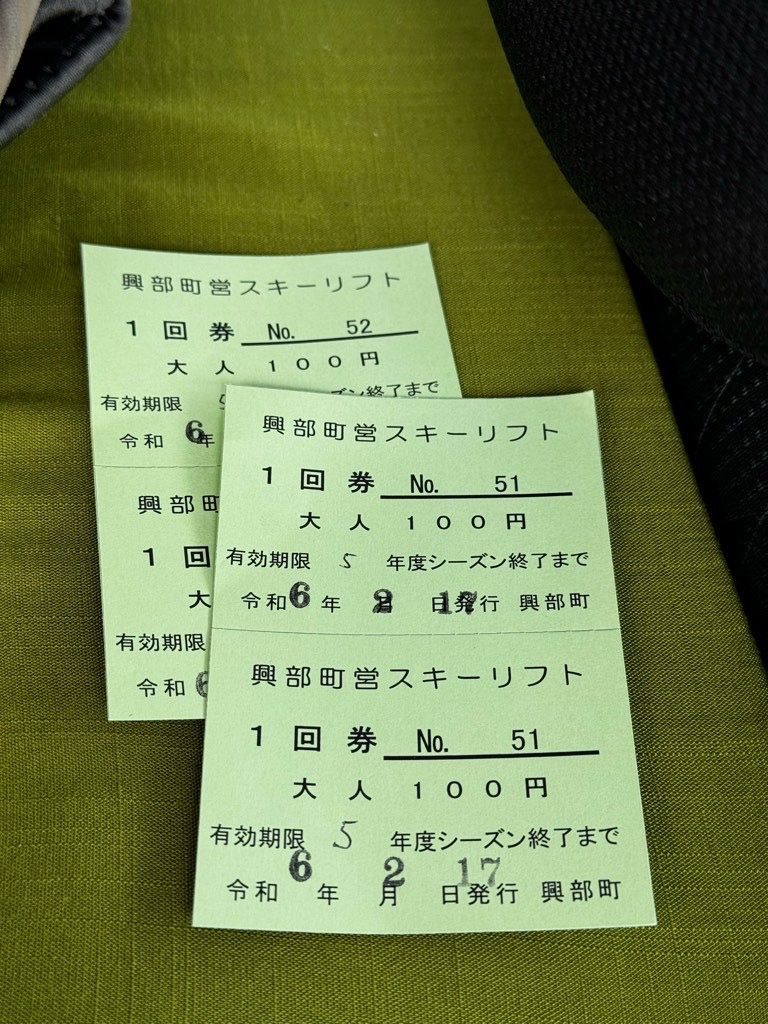 興部町営スキーリフト
1回券 No. 52
大人 100円
有効期限 5 ーズン終了まで
令和 6年
興部町
1回
大
有効期限
令和 6
興部町営スキーリフト
1回券 No. 51
大人 100円
有効期限 5 年度シーズン終了まで
令和 6 年 2 月 17 日発行 興部町
興部町営スキーリフト
1回券 No. 51
大人 100円
有効期限 5 年度シーズン終了まで
令和 6 年 2 月 17 日発行 興部町